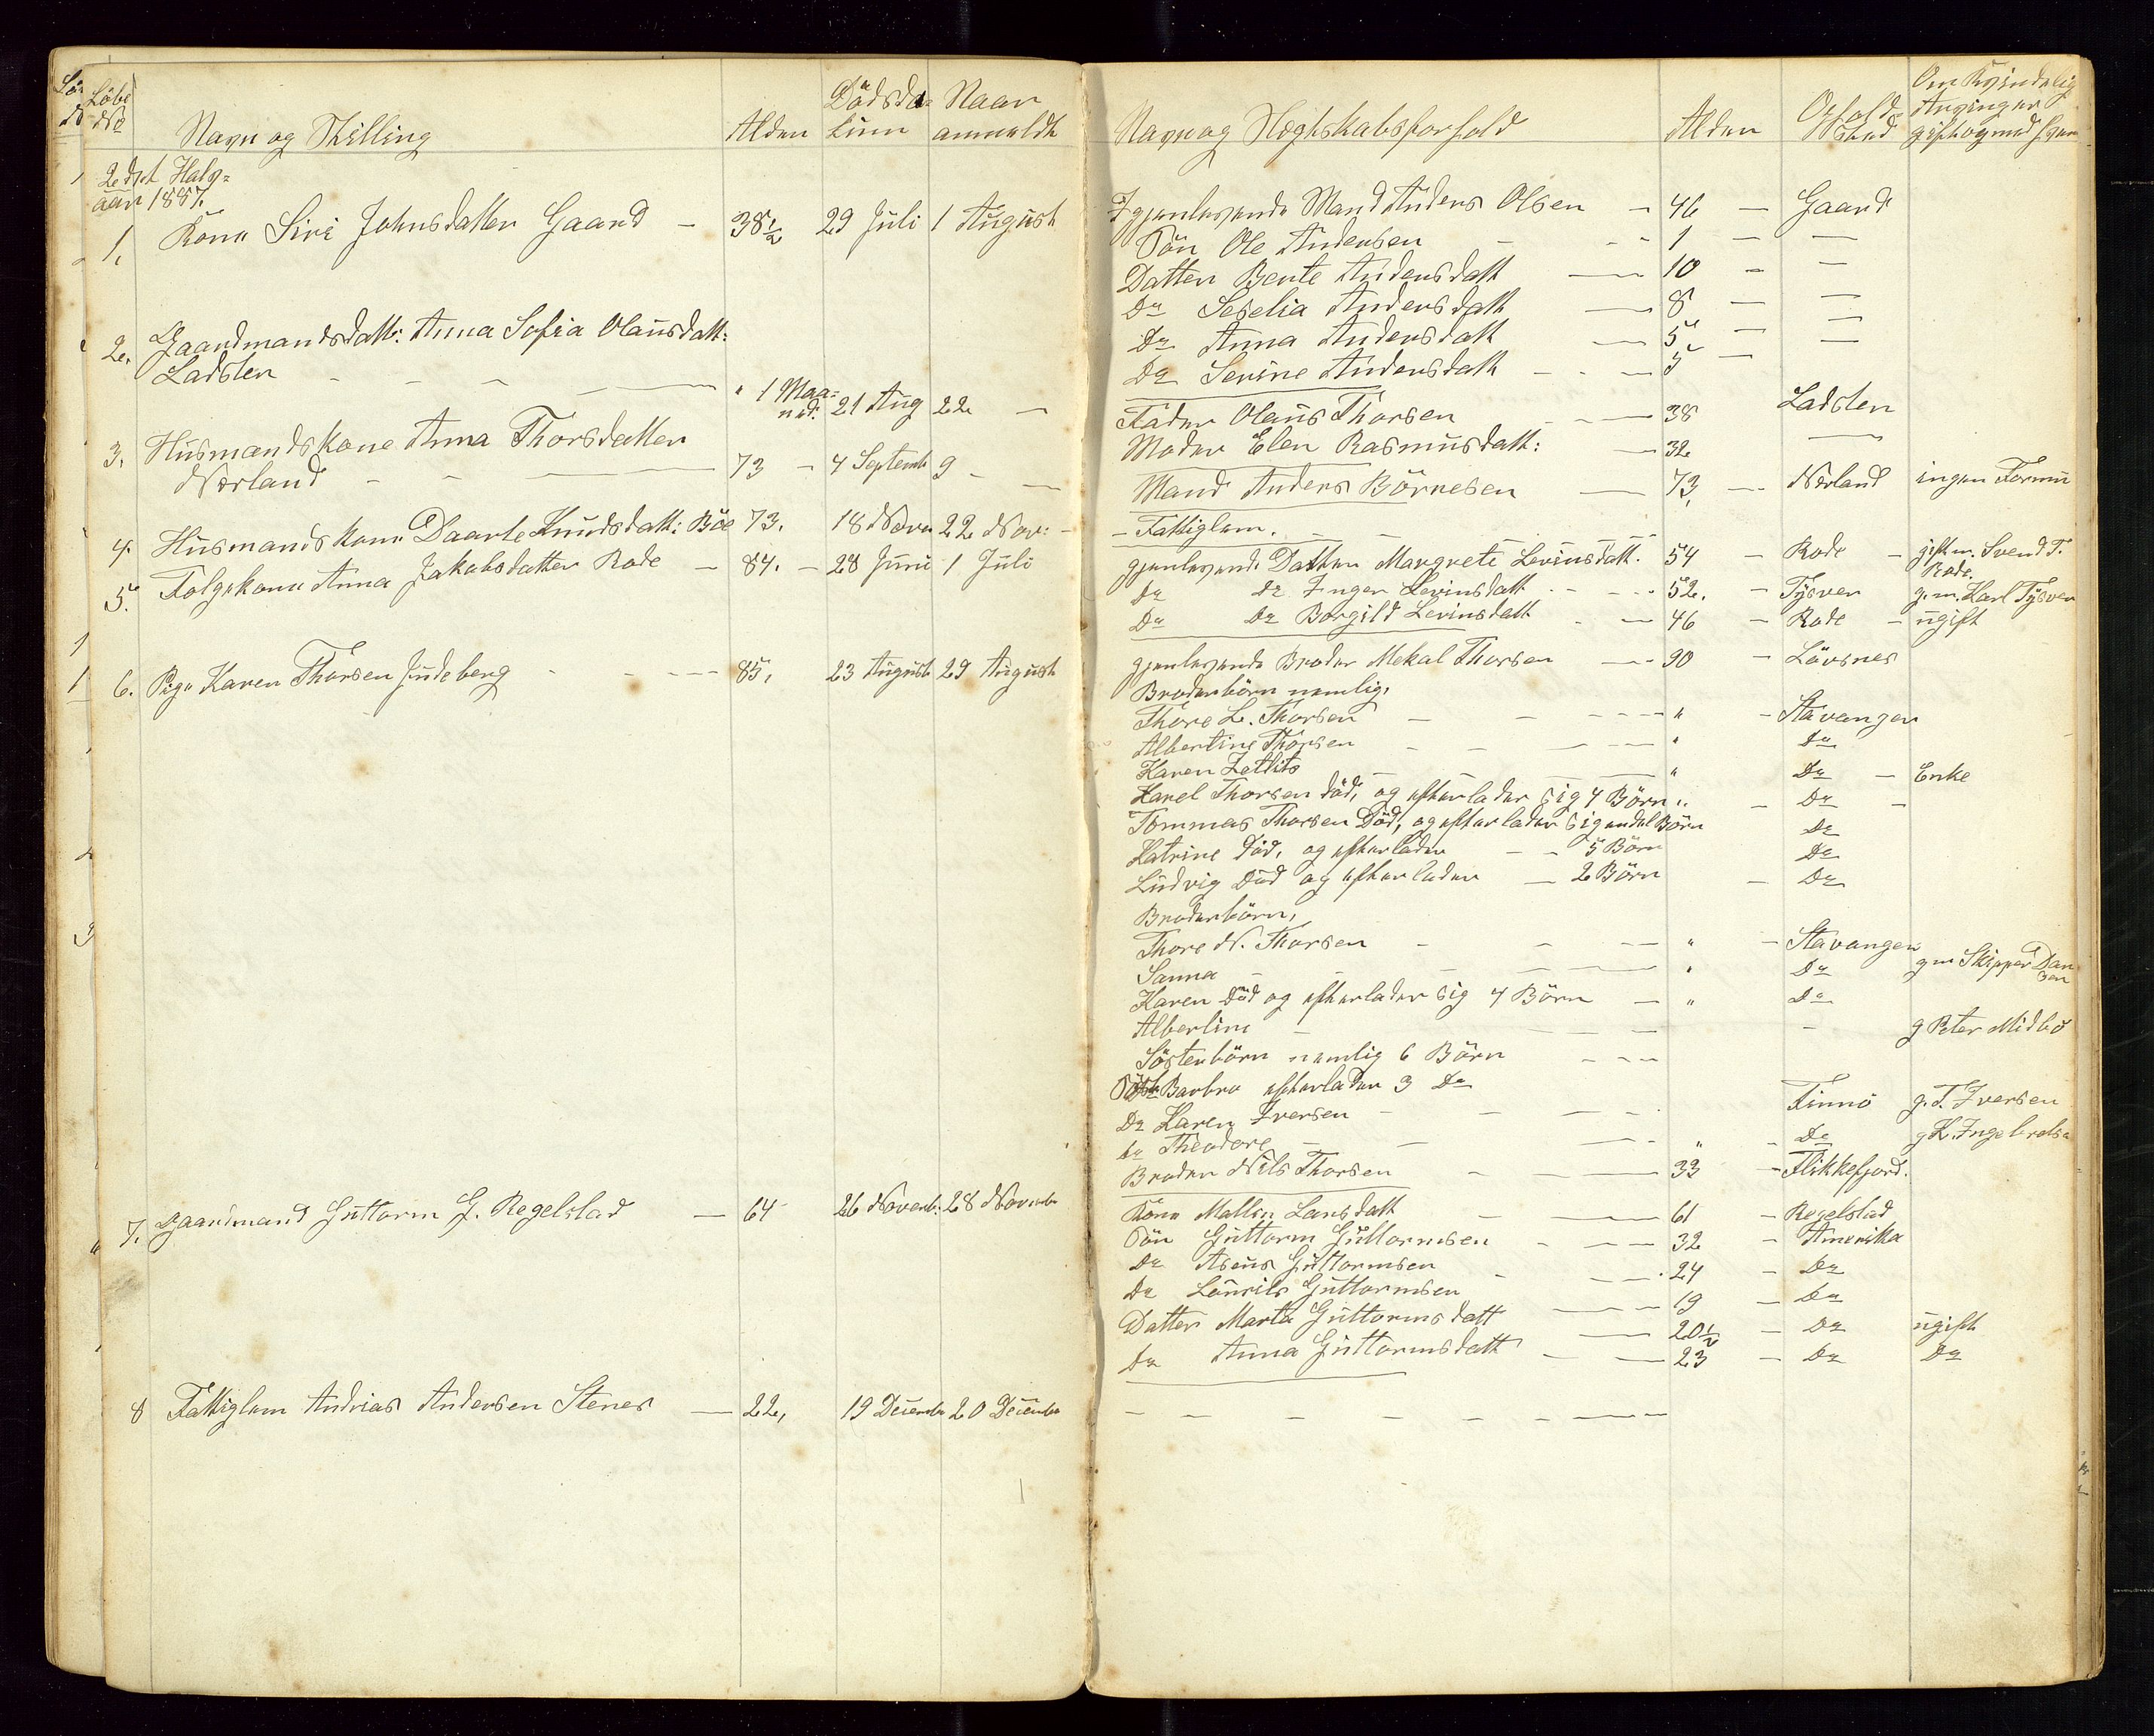 Löbe
No
Navn og Stilling
Alder
Dödsda-
tum
Naar
anmeldt
2det Halv-
aar 1887.
1. Kone Siri Johnsdatter Gaard - 38½ 29 Juli 1 August
2. Gaardmandsdatt: Anna Sofia Olausdatt:
Ladsten - - - " 1 Maa-
ned. 21 Aug 22 -
3. Husmandskone Anna Thorsdatter
Nærland - - - 73 - 4 Septemb 9 -
4. Husmandskone Daarte Knudsdatt: Böe 73. 18 Novr 22 Nov: -
5. Folgekone Anna Jakobsdatter Rode - 84. - 28 Juni 1 Juli
6. Pige Karen Thorsen Judeberg - - - 85, 23 August 29 August
7. Gaardmand Guttorm G. Regelstad - 64 26 Novemb: 28 Novembr
8 Fattiglem Andrias Andersen Stenes - 22, 19 Decembr 20 Decembr
Navn og Slegtskabsforhold
Alder
Opholds-
sted
Om Kvindelig
Arvinger
gift og med hvem
Igjenlevende Mand Anders Olsen - 46 - Gaard
Sön Ole Andersen - - 1 - -
Datter Bente Andersdatt - 10 - -
Do Seselia Andersdatt - 8 - -
Do Anna Andersdatt - 5 - -
Do Serine Andersdatt - - 5 - -
Fader Olaus Thorsen - 38 Ladsten
Moder Elen Rasmusdatt: - 32 -
Mand Anders Börresen - 73, - Nærland ingen Formu
- Fattiglem. - - - -
gjenlevende Datter Margrete Levinsdatt. 54 - Rode - gift m. Svend T.
Rode.
Do Do Inger Levinsdatt - - - 52. - Tysver g. m. Karl Tysver
Do Do Borgild Levinsdatt - - 46 - Rode - ugift
gjenlevende Broder Mekal Thorsen - 90 - Lövsnes
Broderbörn nemlig,
Thore L. Thorsen - - - " - Stavanger
Albertine Thorsen - - - " Do
Karen Zetlits - - " Do - Enke
Karel Thorsen död, og efterlader sig 4 Börn " - Do -
Tommas Thorsen Död, og efterlader sig endel Börn Do
Katrine död, og efterlader - - 5 Börn Do
Ludvig Död og efterlader - 2 Börn - Do
Broderbörn,
Thore N. Thorsen - - - " - Stavanger
Sanna - - - " Do gm Skipper Dan
sen
Karen Död og efterlader sig 4 Börn - " Do
Albertine - - - - g Peter Midbö
Sösterbörn nemlig 6 Börn - - -
Barbro efterlader 3 Do
Do Karen Iversen - - - Finnö g. T. Iversen
Do Theodore - - - " - Do g K. Ingebrets
Broder Nils Thorsen - - 33 - Flikkefjord.
Kone Mallin Larsdatt - - 61 - Regelstad
Sön Guttorm Guttormsen - - - 32 - Amerika
Do Asens Guttormsen - - - 24 - Do
Do Lourits Guttormsen - - 19 - Do
Datter Marta Guttormsdatt - 20½ - Do ugift
Do Anna Guttormsdatt - - 23 - Do Do
- - - - - - - -